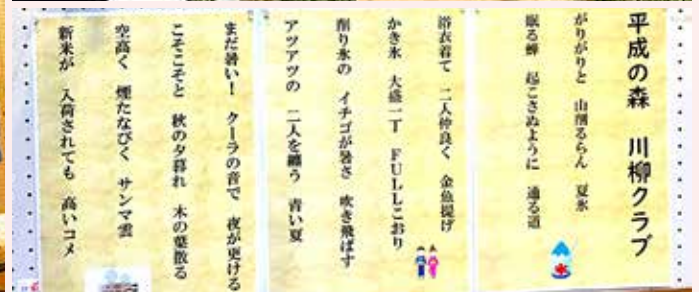 平成の森 川柳クラブ
がりがりと 山削るらん 夏氷
眠る蝉 起こさぬように 通る道
浴衣着て 二人仲良く 金魚提げ
かき氷 大盛一丁 FULLこおり
削り氷の イチゴが暑さ 吹き飛ばす
アツアツの 二人を纏う 青い夏
まだ暑い! クーラの音で 夜が更ける
こそこそと 秋の夕暮れ 木の葉散る
空高く 煙たなびく サンマ雲
新米が 入荷されても 高いコメ